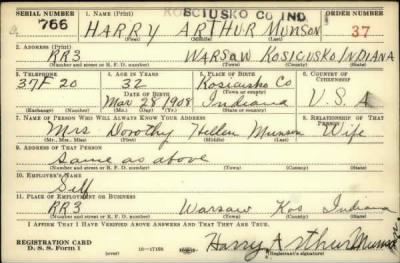 KOSCIUSKO CO IND.
SERIAL NUMBER 1. NAME (Print) ORDER NUMBER
766 HARRY ARTHUR Munson 37
(First) (Middle) (Last)
2. ADDRESS (Print)
RR3 WARSAW KOSICUSKO INDIANA
(Number and street or R. F. D. number) (Town) (County) (State)
3. TELEPHONE 4. AGE IN YEARS 5. PLACE OF BIRTH 6. COUNTRY OF CITIZENSHIP
37F 20 32 Kosicusko Co
DATE OF BIRTH (Town or county)
Mar 28 1908 Indiana U.S.A
(Exchange) (Number) (Mo.) (Day) (Yr.) (State or country)
7. NAME OF PERSON WHO WILL ALWAYS KNOW YOUR ADDRESS 8. RELATIONSHIP OF THAT PERSON
Mrs Dorothy Hellen Munson Wife
(Mr., Mrs., Miss) (First) (Middle) (Last)
9. ADDRESS OF THAT PERSON
Same as above
(Number and street or R. F. D. number) (Town) (County) (State)
10. EMPLOYER'S NAME
Self
11. PLACE OF EMPLOYMENT OR BUSINESS
RR3 Warsaw Kos Indiana
(Number and street or R. F. D. number) (Town) (County) (State)
I AFFIRM THAT I HAVE VERIFIED ABOVE ANSWERS AND THAT THEY ARE TRUE.
REGISTRATION CARD
D. S. S. Form 1 (over) 16—17105 Harry Arthur Munson
(Registrant's signature)